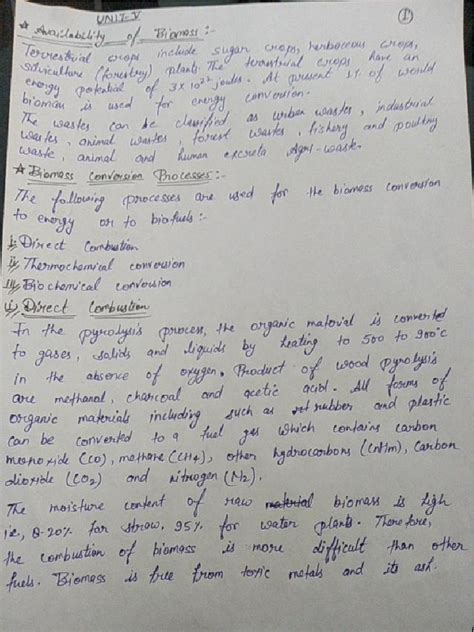 UNIT-V
1
* Availability of Biomass :-
Terrestrial crops include sugar crops, herbaceous crops,
silviculture (forestry) plants. The terrestrial crops have an
energy potential of 3 x 10²² joules. At present 1% of world
biomass is used for energy conversion.
The wastes can be classified as urban wastes, industrial
wastes, animal wastes, forest wastes, fishery and poultry
waste, animal and human excreta Agri-waste.
* Biomass Conversion Processes :-
The following processes are used for the biomass conversion
to energy or to biofuels :-
i, Direct Combustion
ii, Thermochemical conversion
iii, Biochemical conversion
i) Direct Combustion
In the pyrolysis process, the organic material is converted
to gases, solids and liquids by heating to 500 to 900°c
in the absence of oxygen. Product of wood pyrolysis
are methanol, charcoal and acetic acid. All forms of
organic materials including such as rubber and plastic
can be converted to a fuel gas which contains carbon
monoxide (CO), methane (CH4), other hydrocarbons (CnHm), Carbon
dioxide (CO2) and nitrogen (N2).
The moisture content of raw material biomass is high
i.e, 8-20% for straw. 95% for water plants. Therefore,
the combustion of biomass is more difficult than other
fuels. Biomass is free from toxic metals and its ash.